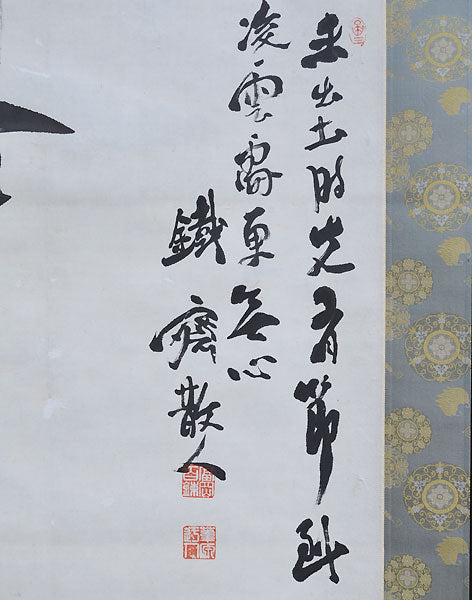 未出土時先有節到
凌雲處更無心
鐵齋散人